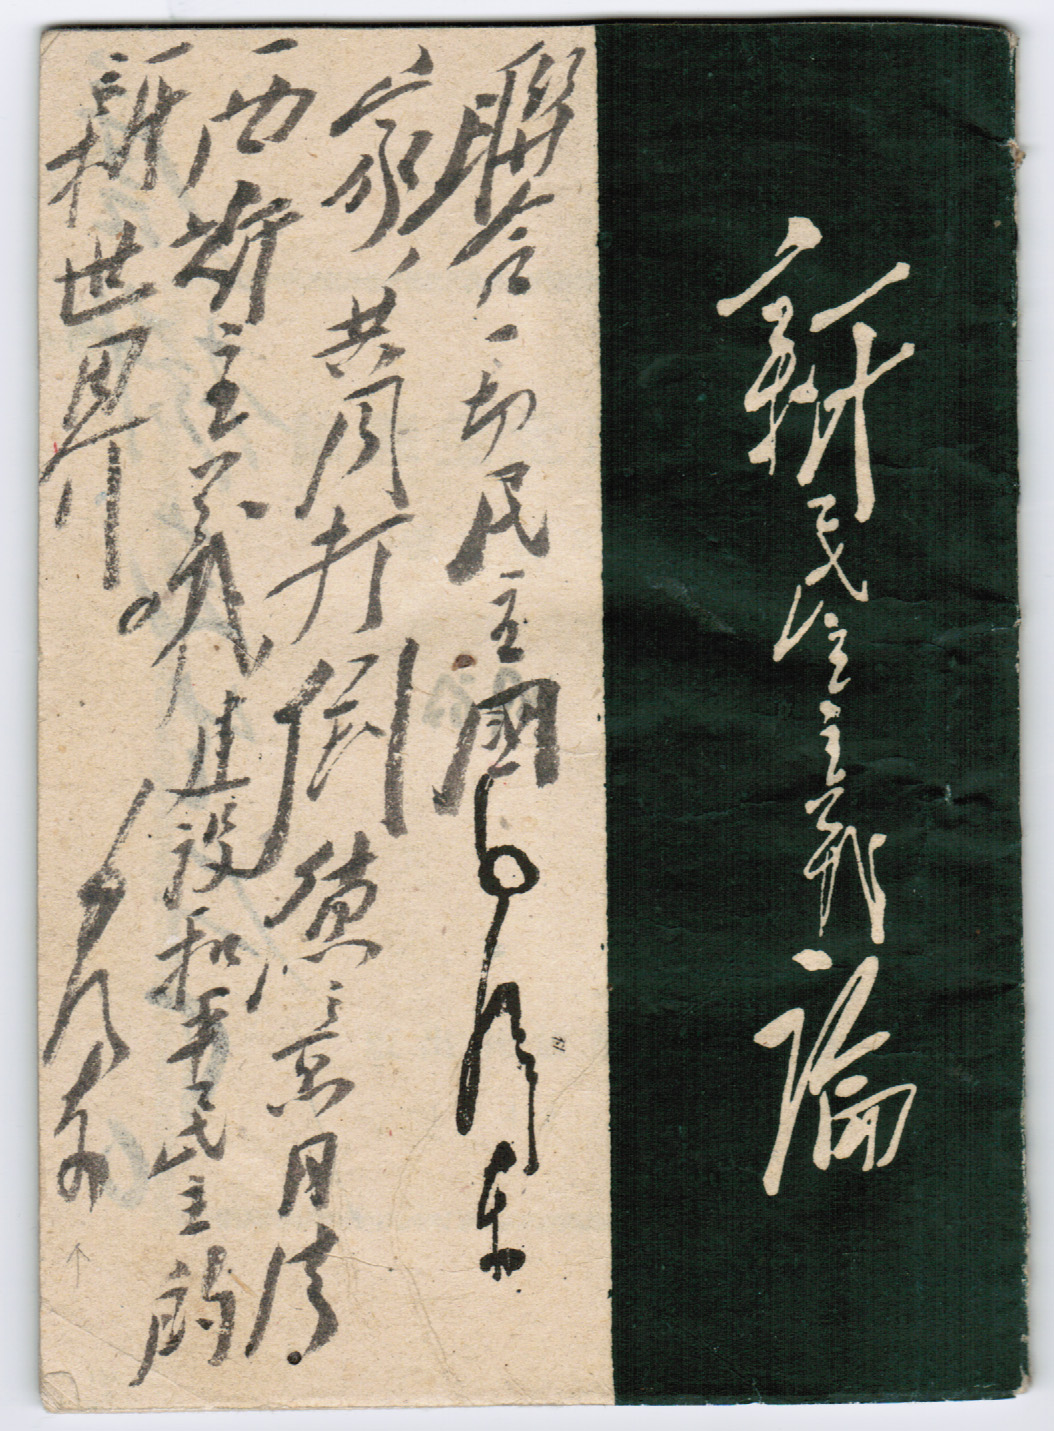 新民主主義論
毛泽东
聯合一切民主國
家、共同打倒德意日法
西斯主義建設和平民主的
新世界。
毛泽东